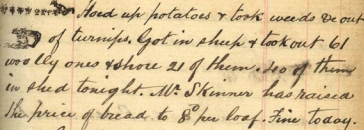 Hoed up potatoes & took weeds &c out
of turnips. Got in sheep & took out 61
woolly ones & shore 21 of them. 40 of them
in shed tonight. Mr Skinner has raised
the price of bread to 8d per loaf. Fine today.